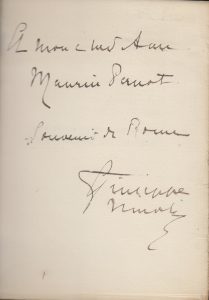 A mon cher Ami
Maurice Pernot
Souvenir de Rome
Giuseppe